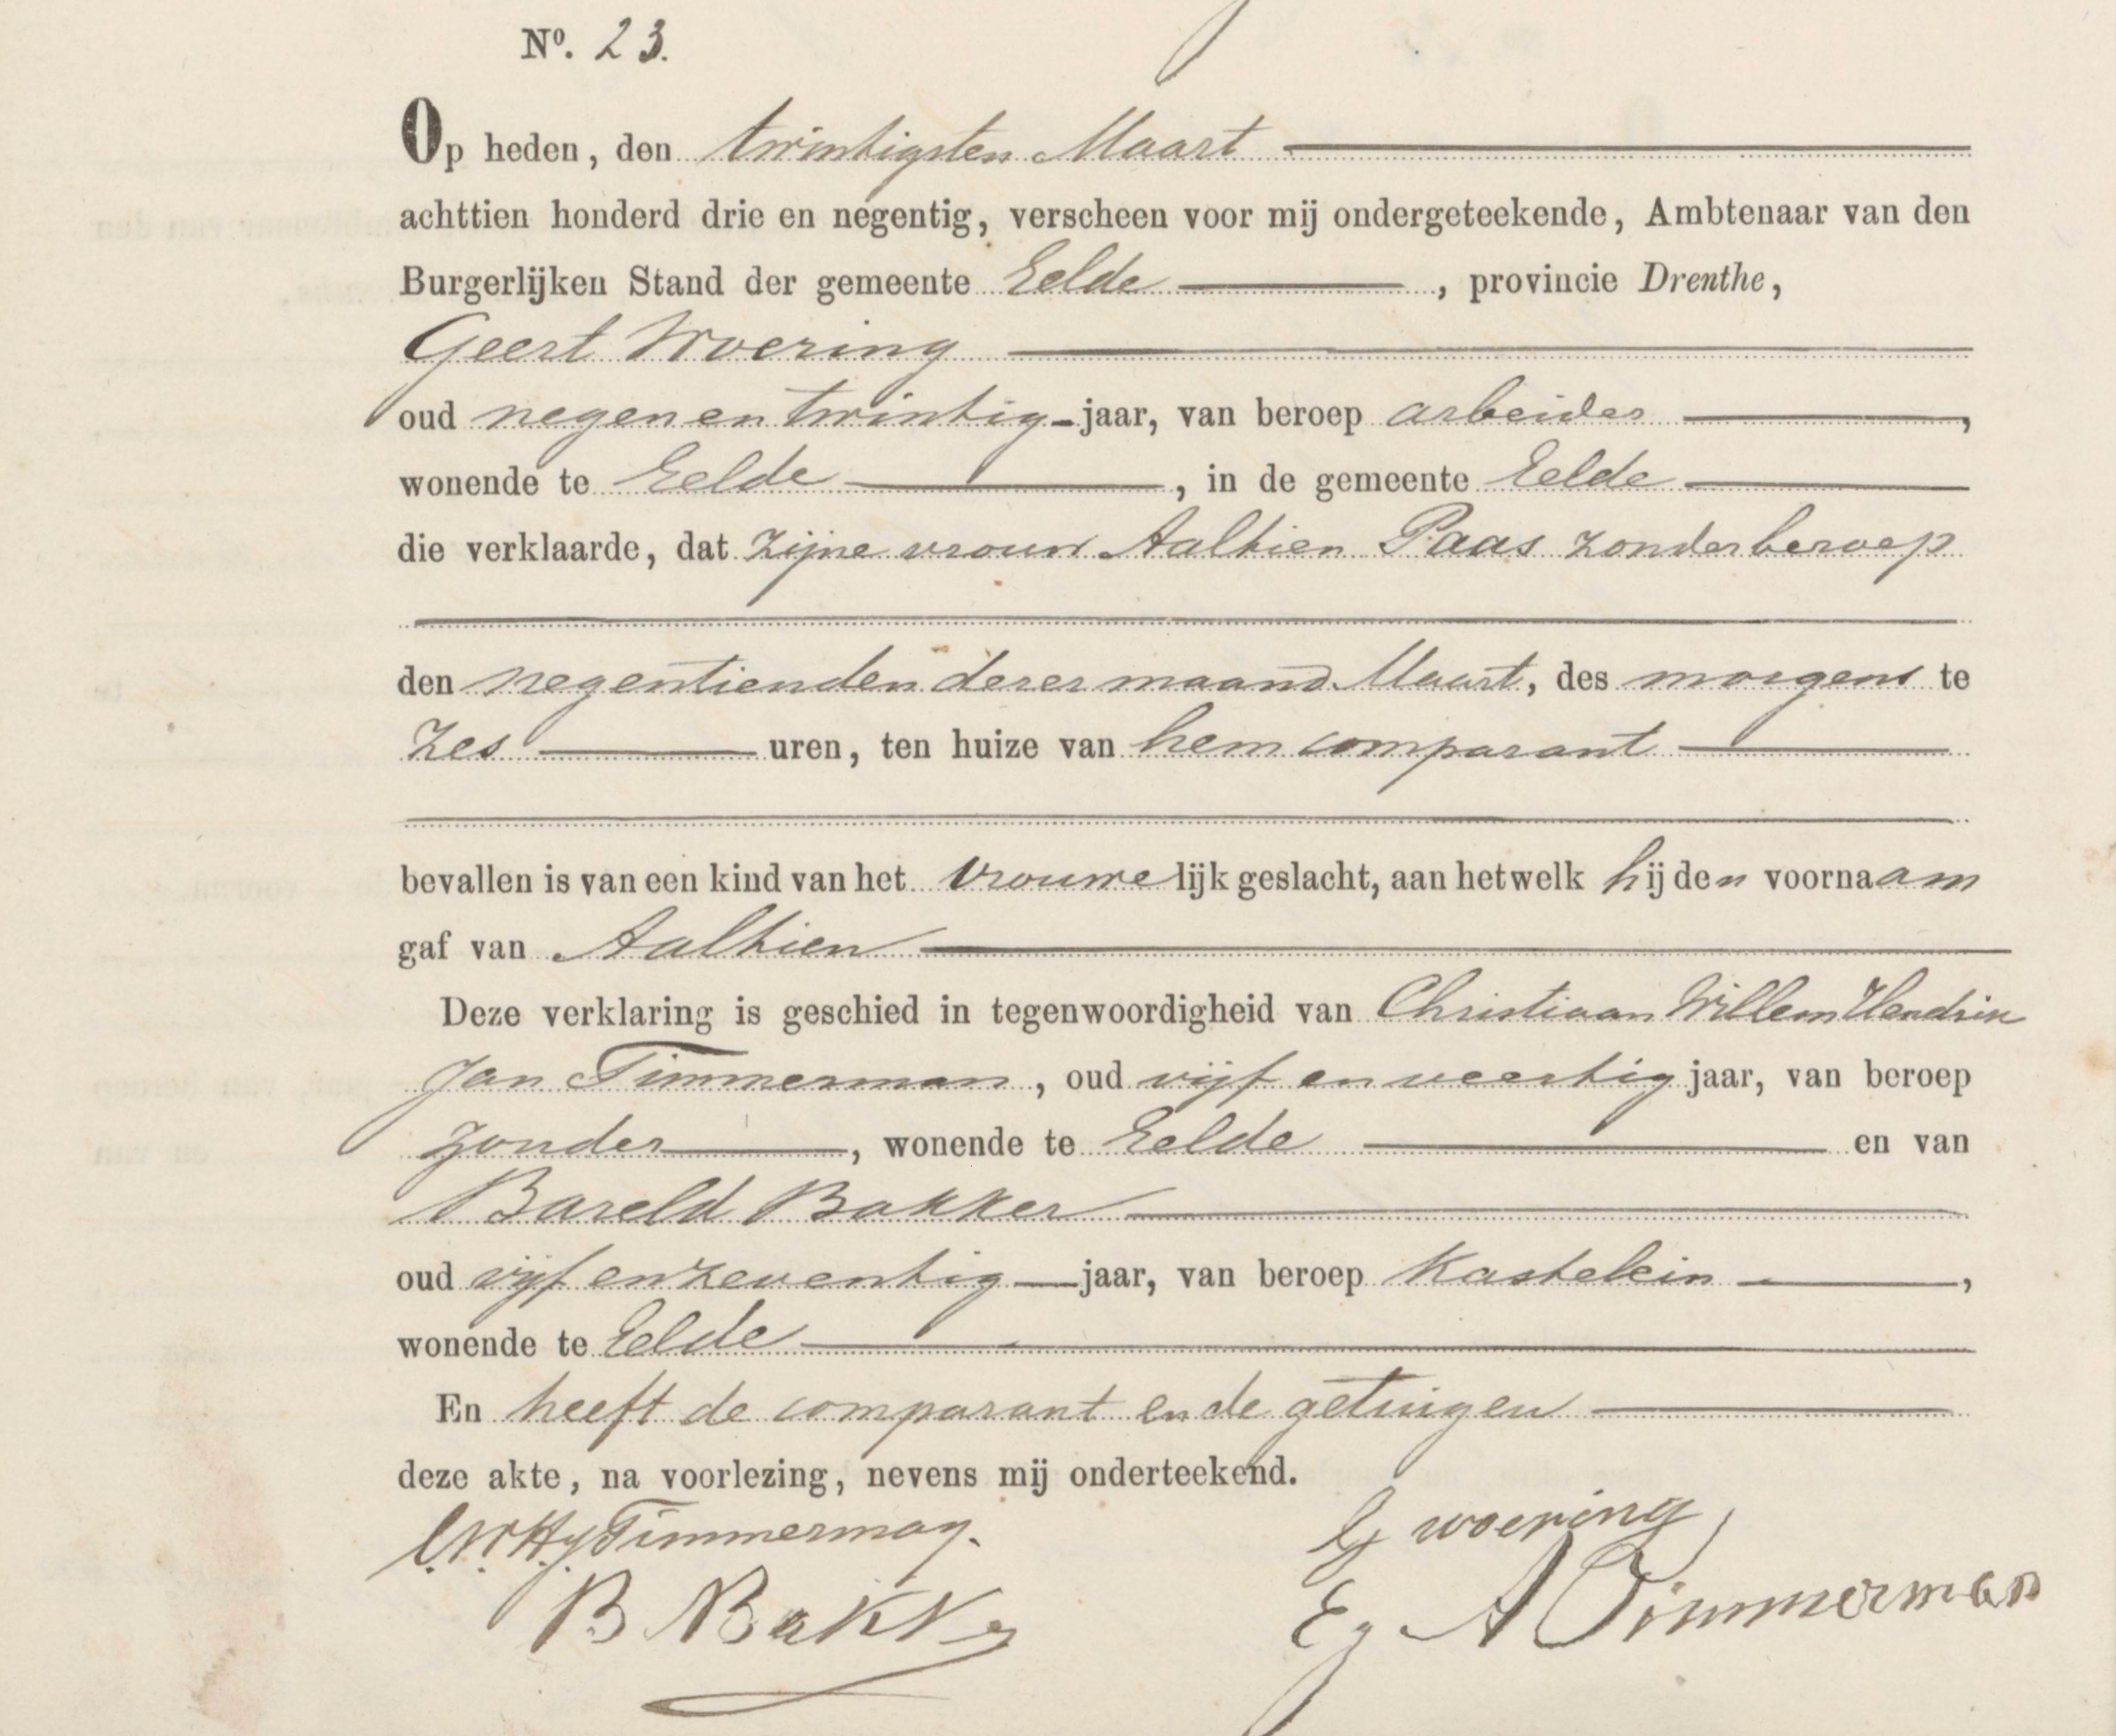 Nº. 23.
Op heden, den twintigsten Maart
achttien honderd drie en negentig, verscheen voor mij ondergeteekende, Ambtenaar van den
Burgerlijken Stand der gemeente Eelde, provincie Drenthe,
Geert Woering
oud negen en twintig jaar, van beroep arbeider,
wonende te Eelde, in de gemeente Eelde
die verklaarde, dat zijne vrouw Aaltien Paas zonder beroep
den negentienden dezer maand Maart, des morgens te
zes uren, ten huize van hem comparant
bevallen is van een kind van het vrouwelijk geslacht, aan hetwelk hij den voornaam
gaf van Aaltien
Deze verklaring is geschied in tegenwoordigheid van Christiaan Willem Hendrik
Jan Timmerman, oud vijf en veertig jaar, van beroep
zonder, wonende te Eelde en van
Bareld Bakker
oud vijf en zeventig jaar, van beroep kastelein,
wonende te Eelde
En heeft de comparant en de getuigen
deze akte, na voorlezing, nevens mij onderteekend.
C.W.H.J. Timmerman. G woering
B Bakker E J A Timmerman